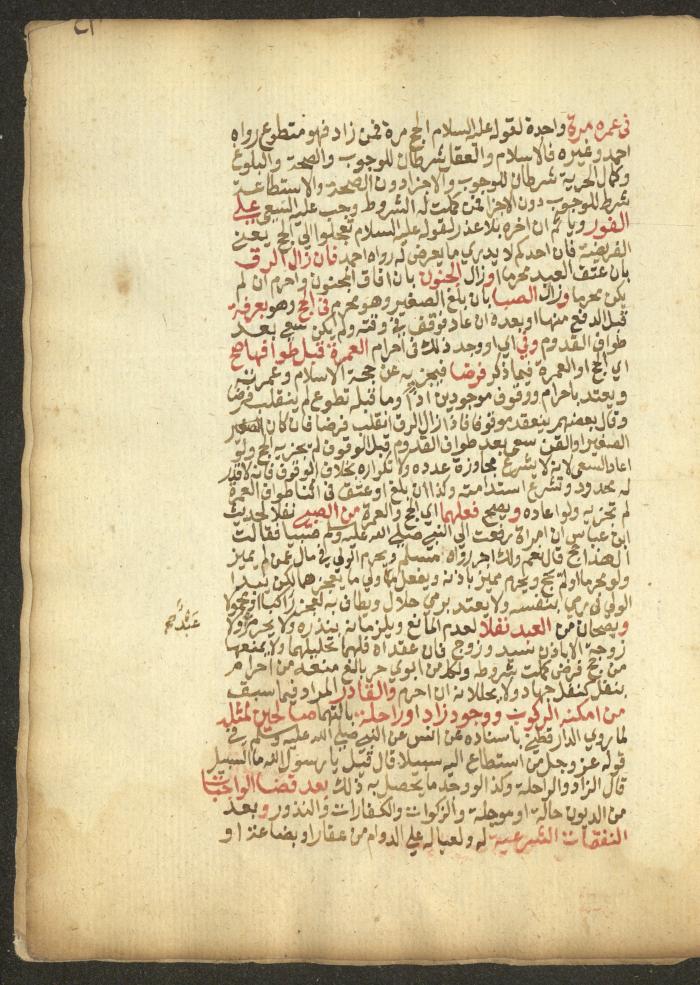 في عمره مرة واحدة لقوله عليه السلام الحج مرة فمن زاد فهو متطوع رواه
احمد وغيره فالاسلام والعقل شرطان للوجوب والصحة والبلوغ
وكمال الحرية شرطان للوجوب والاجزا دون الصحة والاستطاعة
شرط للوجوب دون الاجزا فمن كملت له الشروط وجب عليه السعي على
الفور وياثم ان اخره بلا عذر لقوله عليه السلام تعجلوا الي الحج يعني
الفريضة فان احدكم لا يدري ما يعرض له رواه احمد فان زال الرق
بان عتق العبد محرما وزال الجنون بان افاق المجنون واحرم ان لم
يكن محرما وزال الصبا بان بلغ الصغير وهو محرم في الحج وهو بعرفة
قبل الدفع منها او بعده ان عاد فوقف في وقته ولم يكن سعي بعد
طواف القدوم وفي اي او وجد ذلك في احرام العمرة قبل طوافها صح
اي الحج او العمرة فيما ذكر فرضا فيجزيه عن حجة الاسلام وعمرته
ويعتد باحرام ووقوف موجودين اذا وما قبله تطوع لم ينقلب فرضا
وقال بعضهم ينعقد موقوفا فاذا زال الرق انقلب فرضا فان كان
الصغير او القن سعي بعد طواف القدوم قبل الوقوف لم يجزيه الحج ولو
اعاد السعي لانه لا يشرع مجاوزة عدده ولا تكراره بخلاف الوقوف فانه لا قدر
له محدود وتشرع استدامته وكذا ان بلغ او عتق في اثنا طواف العمرة
لم تجزيه ولو اعاده ويصح فعلهما اي الحج والعمرة من الصبي نفلا لحديث
ابن عباس ان امراة رفعت الي النبي صلي الله عليه وسلم صبيا فقالت
الهذا حج قال نعم ولك اجر رواه مسلم ويحرم الولي في مال عمن لم يميز
ولو محرما او لم يحج ويحرم مميز باذنه ويفعل ولي ما يعجزهما لكن يبدا
الولي في رمي بنفسه ولا يعتد برمي حلال ويطاف به لعجز راكبا او محمولا
ويصحان من العبد نفلا لعدم المانع ويلزمانه بنذره ولا يحرم ولا
زوجة الا باذن سيد وزوج فان عقداه فلهما تحليلهما ولا يمنعها
من حج فرض كملت شروطه ولكل من ابوي حر بالغ منعه من احرام
بنفل كنفل جهاد ولا يحللانه ان احرم والقادر المراد فيما سبق
من امكنه الركوب ووجود زاد او راحلة بالتهما صالحين لمثله
لما روي الدارقطني باسناده عن انس عن النبي صلي الله عليه وسلم في
قوله عز وجل من استطاع اليه سبيلا قال قيل يا رسول الله ما السبيل
قال الزاد والراحلة وكذا لو وجد ما يحصل به ذلك بعد قضا الواجبات
من الديون حالة او موجلة والزكوات والكفارات والنذور وبعد
النفقات الشرعية له ولعياله علي الدوام من عقار او بضاعة او